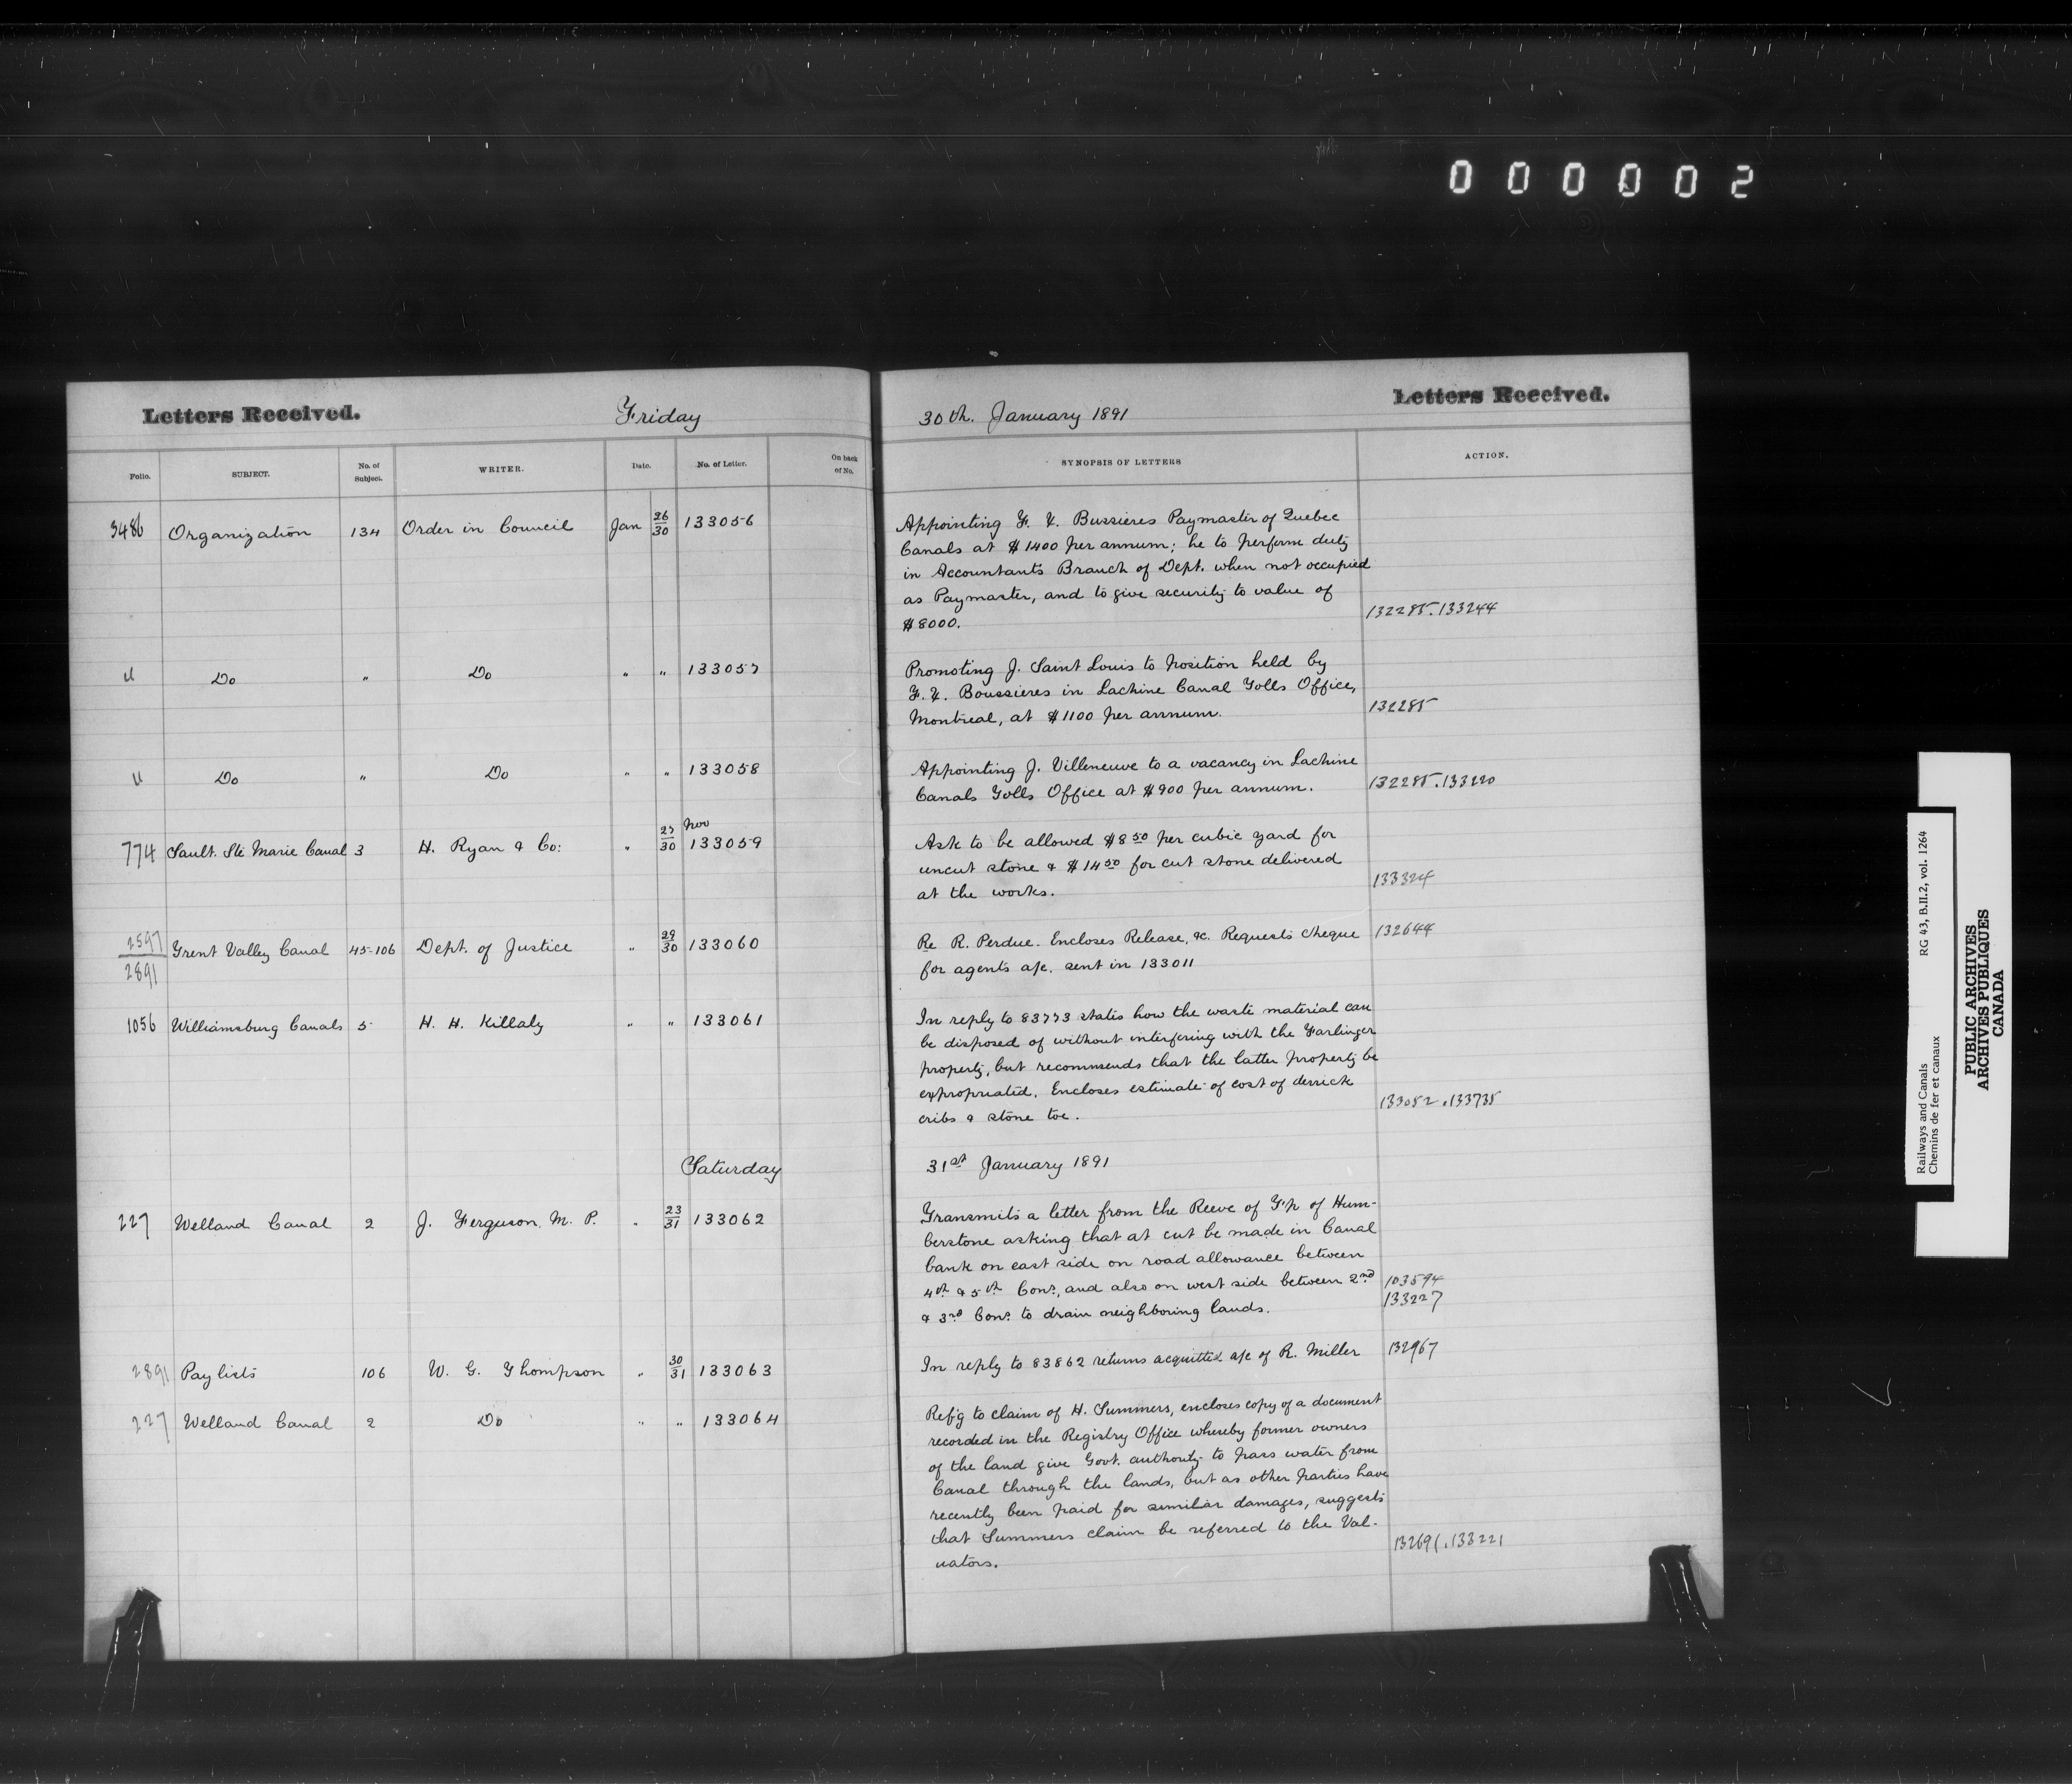 000002
Letters Received.
Friday
30th. January 1891
Letters Received.
Folio.
SUBJECT.
No. of Subject.
WRITER.
Date.
No. of Letter.
On back of No.
SYNOPSIS OF LETTERS
ACTION.
3486 Organization 134 Order in Council Jan 26/30 133056
Appointing F. X. Bussieres Paymaster of Quebec
Canals at $1400 per annum; he to perform duty
in Accountants Branch of Dept. when not occupied
as Paymaster, and to give security to value of
$8000.
132285.133244
" Do " Do " " 133057
Promoting J. Saint Louis to position held by
F. X. Boussieres in Lachine Canal Tolls Office,
Montreal, at $1100 per annum.
132285
" Do " Do " " 133058
Appointing J. Villeneuve to a vacancy in Lachine
Canals Tolls Office at $900 per annum.
132285.133220
774 Sault. Ste Marie Canal 3 H. Ryan & Co: " 27/30 Nov 133059
Ask to be allowed $8 50 per cubic yard for
uncut stone & $14 50 for cut stone delivered
at the works.
133324
2597/2891 Trent Valley Canal 45-106 Dept. of Justice " 29/30 133060
Re R. Perdue. Encloses Release, &c. Requests cheque
for agents a/c. sent in 133011
132644
1056 Williamsburg Canals 5 H. H. Killaly " " 133061
In reply to 83773 states how the waste material can
be disposed of without interfering with the Farlinger
property, but recommends that the latter property be
expropriated. Encloses estimate of cost of derrick
cribs & stone toe.
133052.133735
Saturday
31st January 1891
227 Welland Canal 2 J. Ferguson, M. P. " 23/31 133062
Transmits a letter from the Reeve of T'p of Hum-
berstone asking that at cut be made in Canal
bank on east side on road allowance between
4th & 5th Cons, and also on west side between 2nd
& 3rd Cons. to drain neighboring lands.
103594
133227
2891 Paylists 106 W. G. Thompson " 30/31 133063
In reply to 83862 returns acquitted a/c of R. Miller
132967
227 Welland Canal 2 Do " " 133064
Ref'g to claim of H. Summers, encloses copy of a document
recorded in the Registry Office whereby former owners
of the land give Govt. authority to pass water from
Canal through the lands, but as other parties have
recently been paid for similar damages, suggests
that Summers claim be referred to the Val-
uators.
132691.133221
Railways and Canals RG 43, B.II.2, vol. 1264
Chemins de fer et canaux
PUBLIC ARCHIVES
ARCHIVES PUBLIQUES
CANADA